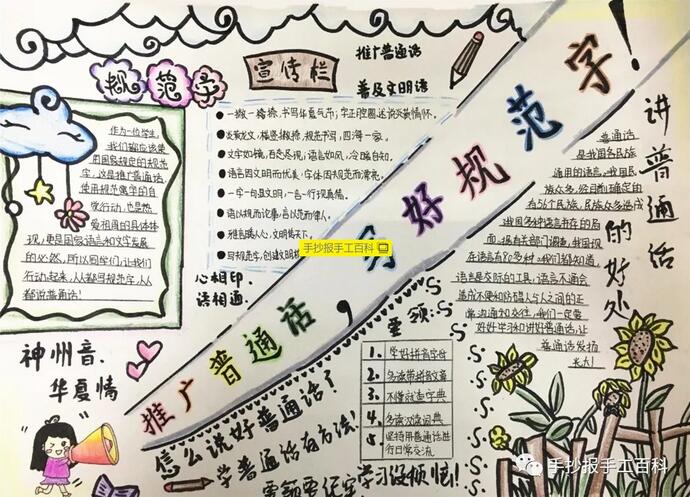 规范字
作为一位学生，
我们都应该使
用国家规定的规范
字，这是推广普通话，
使用规范汉字的自
觉行动，也是热
爱祖国的具体体
现，更是国家语言和文字发展
的必然，所以同学们，让我们
行动起来，人人都写规范字，人人
都说普通话！
宣传栏
推广普通话
普及文明语
一撇一捺捺，书写华夏气节；字正腔圆
文字如镜，百态尽现；语言如风，冷暖自知。
语言因文明而优美，字体因规范而漂亮。
一字一句显文明，一言一行现真情。
语以规而论事，言以范而律人。
心相印，
语相通，
神州音，
华夏情
推广普通话，写好规范字！
讲普通话的好处
普通话
是我国各民族
通用的语言。我国民
族众多，经国家确定的
有56个民族，民族众多造成
我国多种语言并存的局
面。据有关部门调查，我国现
在语言有80多种。我们都知道，
语言是交际的工具，语言不通会
造成不便和妨碍人与人之间的正
常沟通和交往，我们一定要
好好学习和讲好普通话，让
普通话发扬
光大！
要领：
1. 学好拼音字母
2. 多读带拼音文章
3. 不懂就查字典
4. 多读汉语词典
5 坚持用普通话进
行日常交流
怎么说好普通话了
学普通话有方法！
要领要记牢
学习没烦恼！
手抄报手工百科
手抄报手工百科